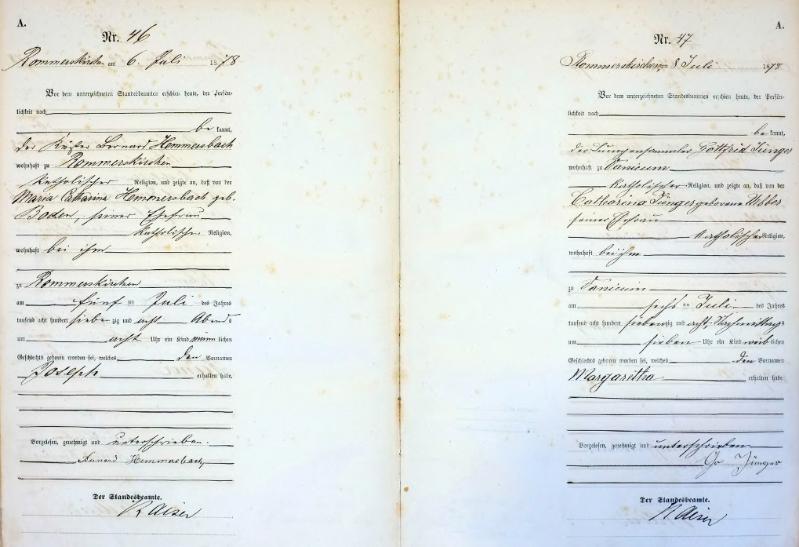 A.
Nr. 46
Rommerskirchen am 6 Juli 1878
Vor dem unterzeichneten Standesbeamten erschien heute, der Persön-
lichkeit nach
be kannt,
der Küster Bernard Hemmersbach
wohnhaft zu Rommerskirchen
katholischer Religion, und zeigte an, daß von der
Maria Catharina Hemmersbach geb.
Boden, seiner Ehefrau
katholischer Religion,
wohnhaft bei ihm
zu Rommerskirchen
am fünf ten Juli des Jahres
tausend acht hundert sieben zig und acht Abends
um acht Uhr ein Kind männlichen
Geschlechts geboren worden sei, welches den Vornamen
Joseph erhalten habe.
Vorgelesen, genehmigt und unterschrieben.
Hemmersbach
Der Standesbeamte.
A.
Nr. 47
Rommerskirchen, 8 Juli 1878
Vor dem unterzeichneten Standesbeamten erschien heute, der Persön-
lichkeit nach
be kannt,
der Gottfried Jünger
wohnhaft zu
katholischer Religion, und zeigte an, daß von der
Catharina Jünger geborene
seiner Ehefrau
katholischer Religion,
wohnhaft bei ihm
zu
am sechs ten Juli des Jahres
tausend acht hundert siebenzig und acht Nachmittags
um sieben Uhr ein Kind weiblichen
Geschlechts geboren worden sei, welches den Vornamen
Margaretha erhalten habe
Vorgelesen, genehmigt und unterschrieben
Jünger
Der Standesbeamte.